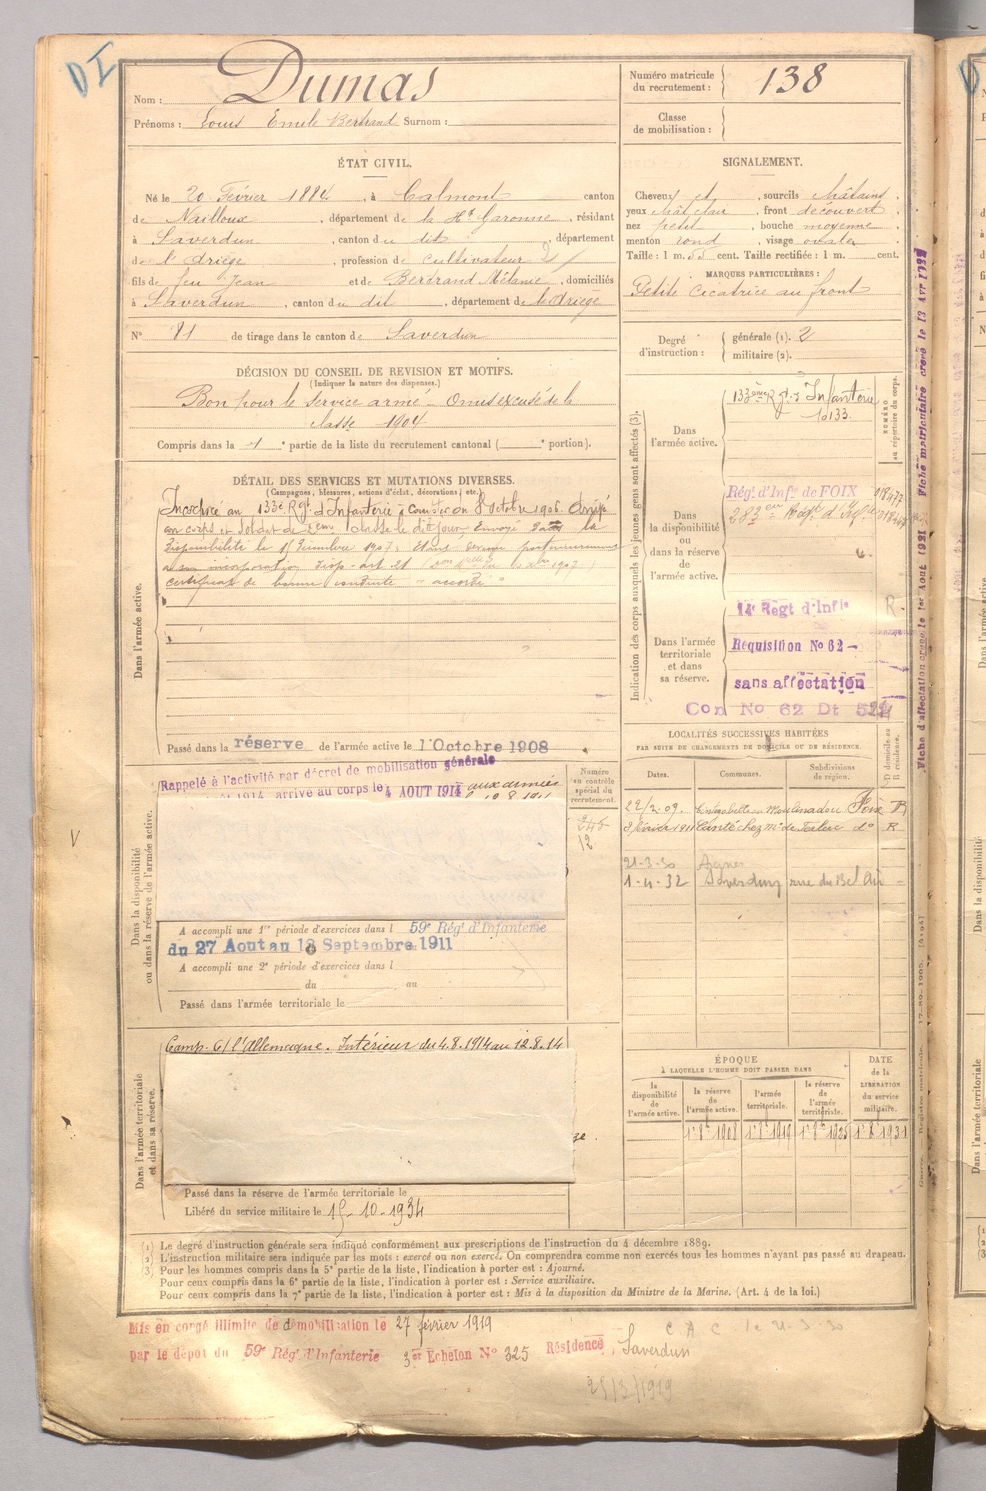 DI
Nom : Dumas
Prénoms : Louis Emile Bertrand Surnom :
Numéro matricule du recrutement : 138
Classe de mobilisation :
ÉTAT CIVIL.
Né le 20 Février 1884, à Calmont canton
de Nailloux, département de la Hte Garonne, résidant
à Saverdun, canton du dit, département
de l'Ariège, profession de cultivateur
fils de feu Jean et de Bertrand Mélanie, domiciliés
à Saverdun, canton du dit, département de l'Ariège
N° 81 de tirage dans le canton de Saverdun
SIGNALEMENT.
Cheveux et, sourcils châtains,
yeux chât clair, front découvert,
nez petit, bouche moyenne,
menton rond, visage ovale
Taille : 1 m. 55 cent. Taille rectifiée : 1 m. cent.
MARQUES PARTICULIÈRES :
Petite cicatrice au front
Degré d'instruction : générale (1). 2
militaire (2).
DÉCISION DU CONSEIL DE REVISION ET MOTIFS.
(Indiquer la nature des dispenses.)
Bon pour le service armé - Omis excusé de la
classe 1904
Compris dans la 1e partie de la liste du recrutement cantonal ( e portion).
DÉTAIL DES SERVICES ET MUTATIONS DIVERSES.
(Campagnes, blessures, actions d'éclat, décorations, etc.)
Dans l'armée active.
Incorporé au 133e Régt d'Infanterie à compter du 8 octobre 1906. Arrivé
au corps et soldat de 2eme classe le dit jour, Envoyé dans la
disponibilité le
à son incorporation
certificat de bonne conduite "accordé"
Passé dans la réserve de l'armée active le 1 Octobre 1908
Indication des corps auxquels les jeunes gens sont affectés (3).
NUMÉRO au répertoire du corps.
Dans l'armée active.
133ème Rgt d'Infanterie
Dans la disponibilité ou dans la réserve de l'armée active.
Rég. d'Infie de FOIX
283em Régt d'Infie
Dans l'armée territoriale et dans sa réserve.
14e Regt d'Infie
R
Réquisition No 62 -
sans affectation
Con No 62 Dt
Fiche d'affectation créée le 1er Aout 1921 Fiche matriculaire créée le 13 Avr
Dans la disponibilité ou dans la réserve de l'armée active.
Rappelé à l'activité par décret de mobilisation générale
1914 arrivé au corps le 4 AOUT 1914 aux armées
Numéro au contrôle spécial du recrutement.
245
12
A accompli une 1re période d'exercices dans l 59e Rég. d'Infanterie
du 27 Aout au 18 Septembre 1911
A accompli une 2e période d'exercices dans l
du au
Passé dans l'armée territoriale le
LOCALITÉS SUCCESSIVES HABITÉES
PAR SUITE DE CHANGEMENTS DE DOMICILE OU DE RÉSIDENCE.
Dates. Communes. Subdivisions de région. D domicile ou R résidence.
22/2.09. Foix R
Canté chez Mr de do R
21-3-30
1-4-32 Saverdun rue du Bel Air
Dans l'armée territoriale et dans sa réserve.
Camp. C/ l'Allemagne. Intérieur du 4.8.1914 au 12.8.14
Passé dans la réserve de l'armée territoriale le
Libéré du service militaire le 15-10-1934
ÉPOQUE
À LAQUELLE L'HOMME DOIT PASSER DANS
la disponibilité de l'armée active. la réserve de l'armée active. l'armée territoriale. la réserve de l'armée territoriale. DATE de la LIBÉRATION du service militaire.
(1) Le degré d'instruction générale sera indiqué conformément aux prescriptions de l'instruction du 4 décembre 1889.
(2) L'instruction militaire sera indiquée par les mots : exercé ou non exercé. On comprendra comme non exercés tous les hommes n'ayant pas passé au drapeau.
(3) Pour les hommes compris dans la 5e partie de la liste, l'indication à porter est : Ajourné.
Pour ceux compris dans la 6e partie de la liste, l'indication à porter est : Service auxiliaire.
Pour ceux compris dans la 7e partie de la liste, l'indication à porter est : Mis à la disposition du Ministre de la Marine. (Art. 4 de la loi.)
Mis en congé illimité de démobilisation le 27 février 1919
par le dépot du 59e Rég. d'Infanterie 3er Echelon No 325 Résidence, Saverdun
C A C le 21-3-30
25/3/1919